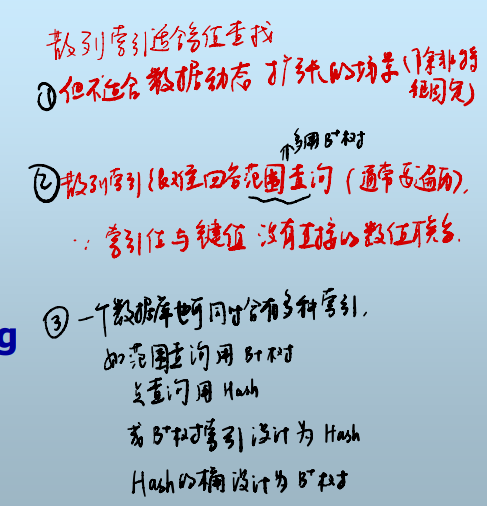 散列索引适合等值查找
①但不适合数据动态扩张的场景(除非
很
多用B+树
②散列索引很难回答范围查询(通常要遍历),
∵索引值与键值没有直接的数值联系.
g
③一个数据库也可同时含有多种索引,
如范围查询用B+树
点查询用Hash
或B+树索引设计为Hash
Hash的桶设计为B+树